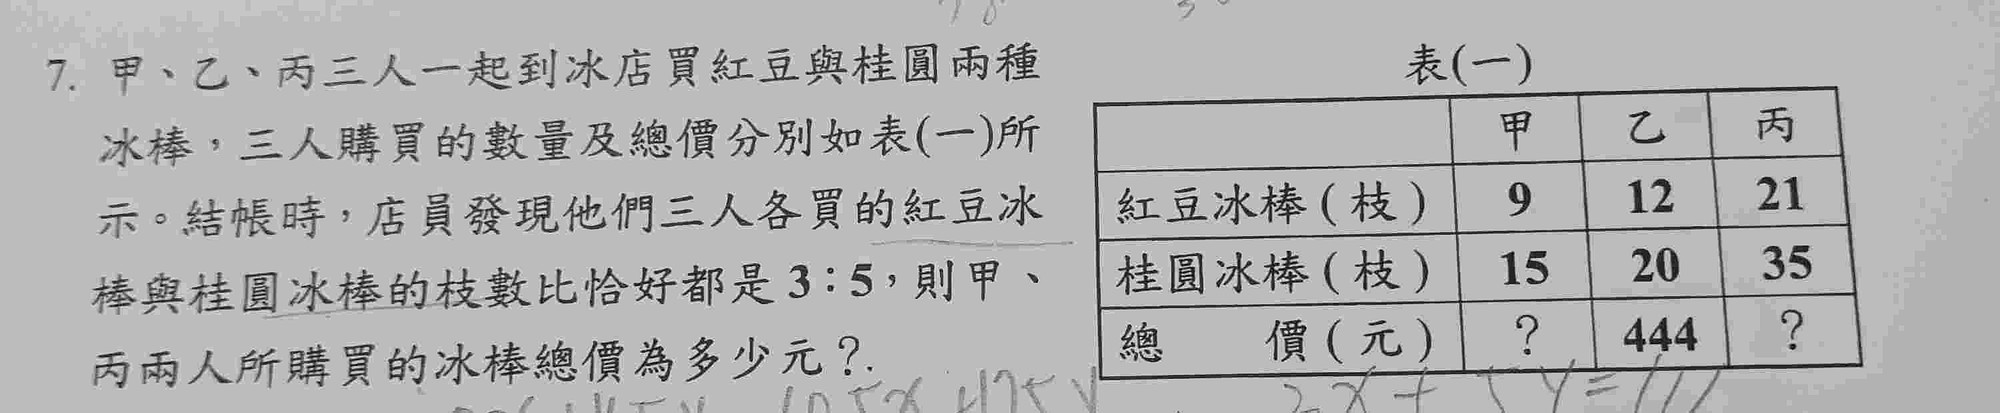 7. 甲、乙、丙三人一起到冰店買紅豆與桂圓兩種
冰棒，三人購買的數量及總價分別如表(一)所
示。結帳時，店員發現他們三人各買的紅豆冰
棒與桂圓冰棒的枝數比恰好都是3：5，則甲、
丙兩人所購買的冰棒總價為多少元？
表(一)
甲 乙 丙
紅豆冰棒(枝) 9 12 21
桂圓冰棒(枝) 15 20 35
總 價(元) ? 444 ?
3x+5y=111